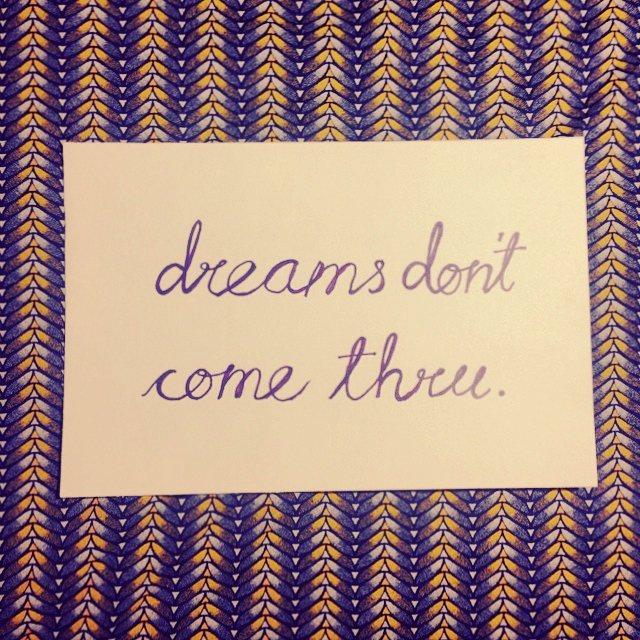 dreams don't
come thru.